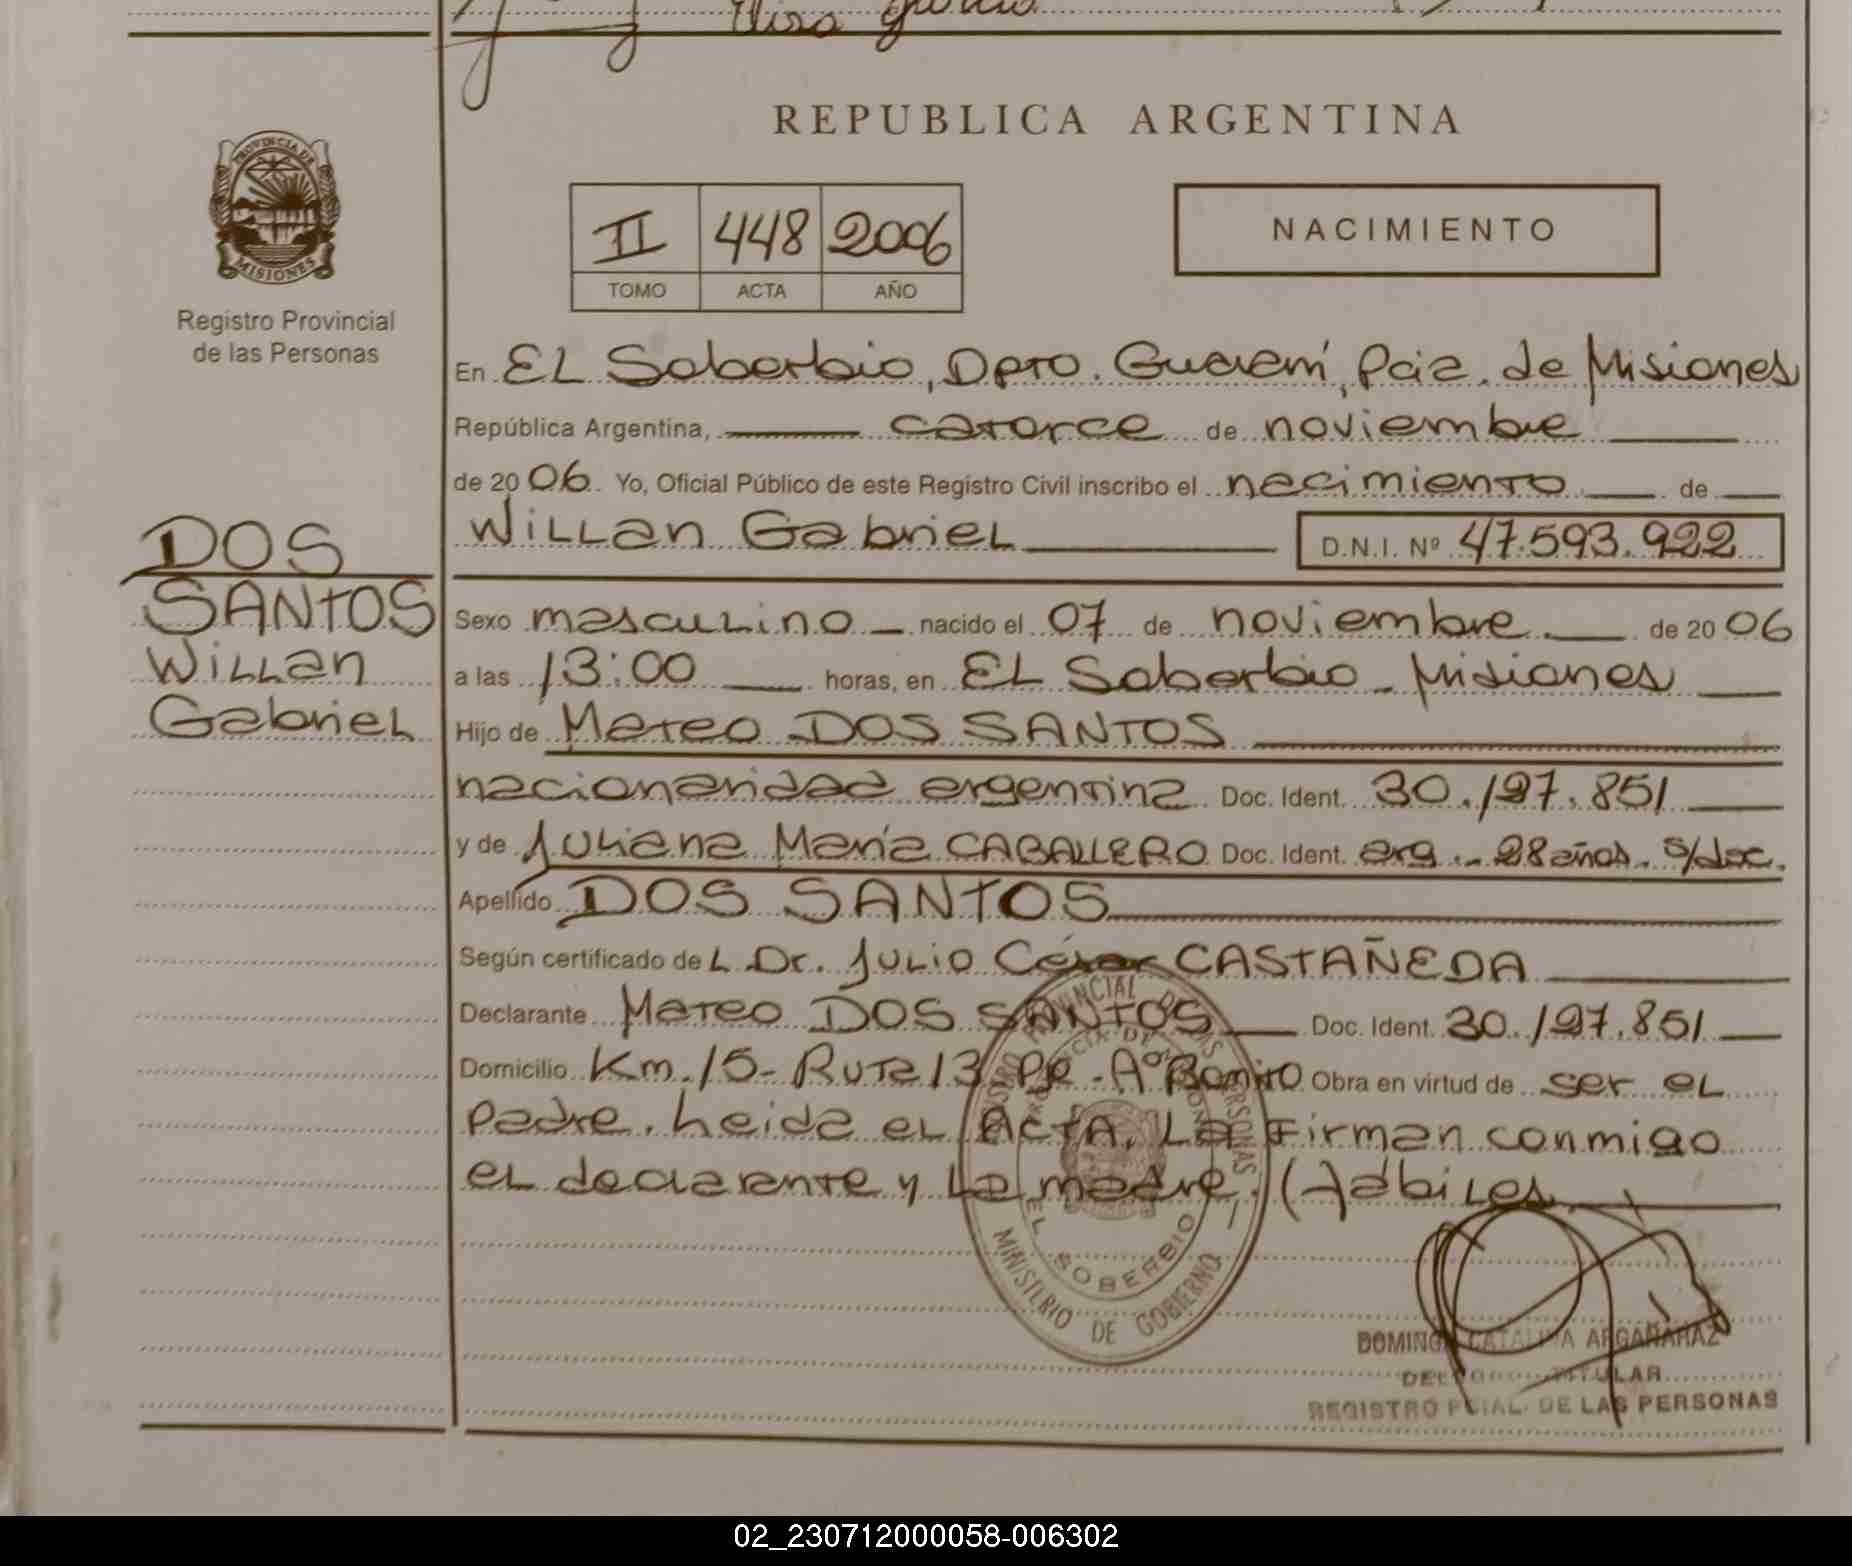 Elisa
REPUBLICA ARGENTINA
PROVINCIA DE
MISIONES
Registro Provincial
de las Personas
II 448 2006
TOMO ACTA AÑO
NACIMIENTO
En EL Soberbio, Dpto. Guaraní, Pcia. de Misiones
República Argentina, catorce de noviembre
de 2006. Yo, Oficial Público de este Registro Civil inscribo el nacimiento de
Willan Gabriel D.N.I. Nº 47.593.922
DOS
SANTOS
Willan
Gabriel
Sexo masculino nacido el 07 de noviembre de 2006
a las 13:00 horas, en EL Soberbio - Misiones
Hijo de Mateo DOS SANTOS
nacionalidad argentina Doc. Ident. 30.197.851
y de Juliana María CABALLERO Doc. Ident. arg - 28 años. s/doc.
Apellido DOS SANTOS
Según certificado del Dr. Julio César CASTAÑEDA
Declarante Mateo DOS SANTOS Doc. Ident. 30.197.851
Domicilio Km. 15 - Ruta 13 Pje - Aº Bonito Obra en virtud de ser el
Padre. Leida el ACTA, La Firman conmigo
el declarante y la madre. (-) abiles
REGISTRO PROVINCIAL DE LAS PERSONAS
PROVINCIA DE MISIONES
EL SOBERBIO
MINISTERIO DE GOBIERNO
DOMINGA CATALINA ARGAÑARAZ
TITULAR
REGISTRO PCIAL. DE LAS PERSONAS
02_230712000058-006302